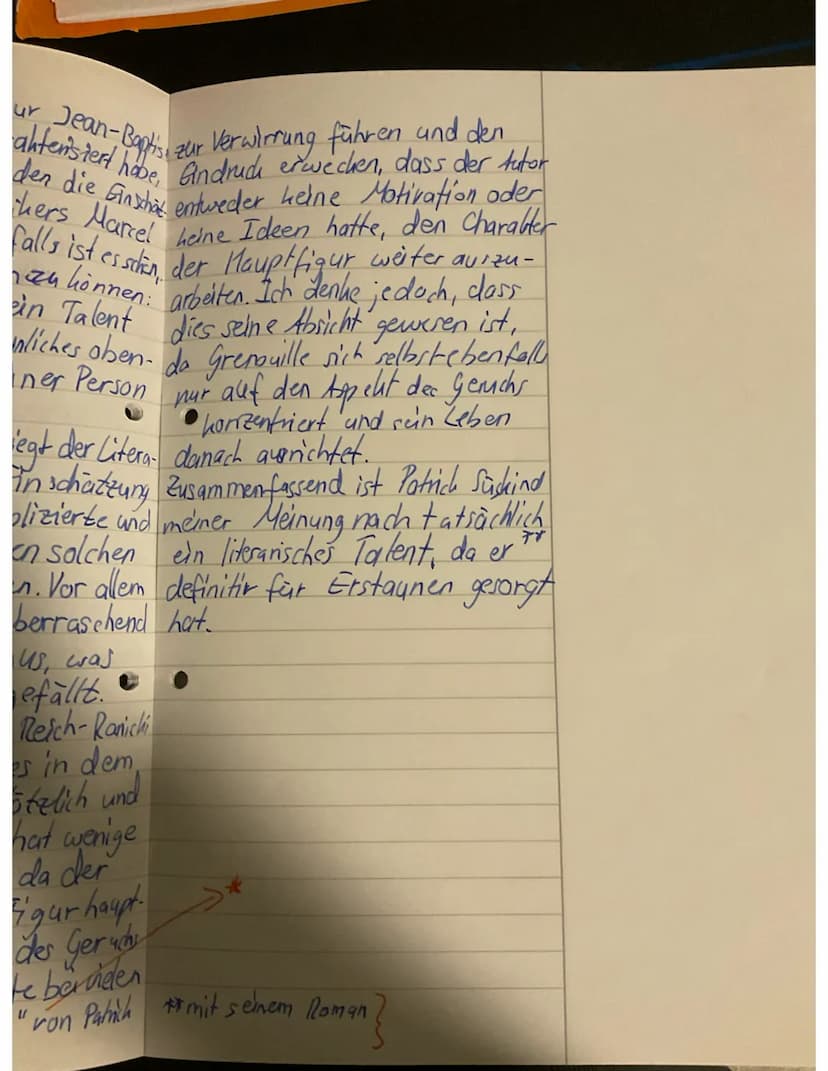 ur Jean-Baptis
akterisiert habe,
den die Einschät-
ikers Marcel
falls ist es schön,
nzu können:
ein Talent
nliches oben-
iner Person
iegt der Litera-
Einschätzung
plizierte und
en solchen
n. Vor allem
berraschend
us, was
gefällt.
Reich-Ranicki
es in dem
ötzlich und
hat wenige
da der
Figur haupt-
des Geruchs
te bei vielen
" von Patrick
zur Verwirrung führen und den
Eindruck erwecken, dass der Autor
entweder keine Motivation oder
keine Ideen hatte, den Charakter
der Hauptfigur weiter auszu-
arbeiten. Ich denke jedoch, dass
dies seine Absicht gewesen ist,
da Grenouille sich selbst ebenfalls
nur auf den Aspekt des Geruchs
konzentriert und sein Leben
danach ausrichtet.
Zusammenfassend ist Patrick Süskind
meiner Meinung nach tatsächlich
ein literarisches Talent, da er **
definitiv für Erstaunen gesorgt
hat.
*
** mit seinem Roman }